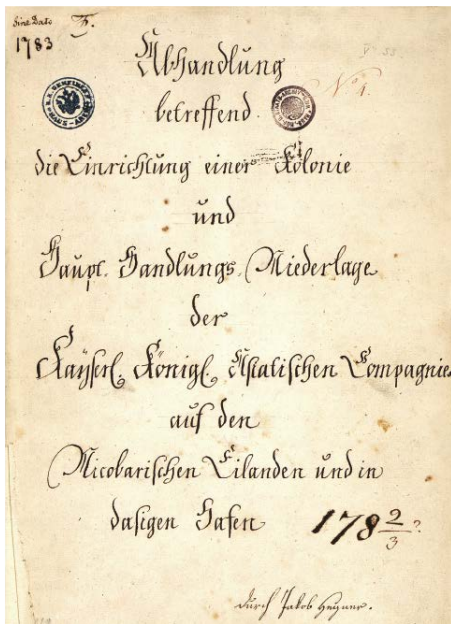 Sine Dato
1783
Abhandlung
betreffend
No 1.
die Einrichtung einer Kolonie
und
Haupt. Handlungs. Niederlage
der
Kayserl. Königl. Asiatischen Compagnie
auf den
Nicobarischen Eilanden und in
dasigen Hafen
178 2/3 ?
durch Jakob